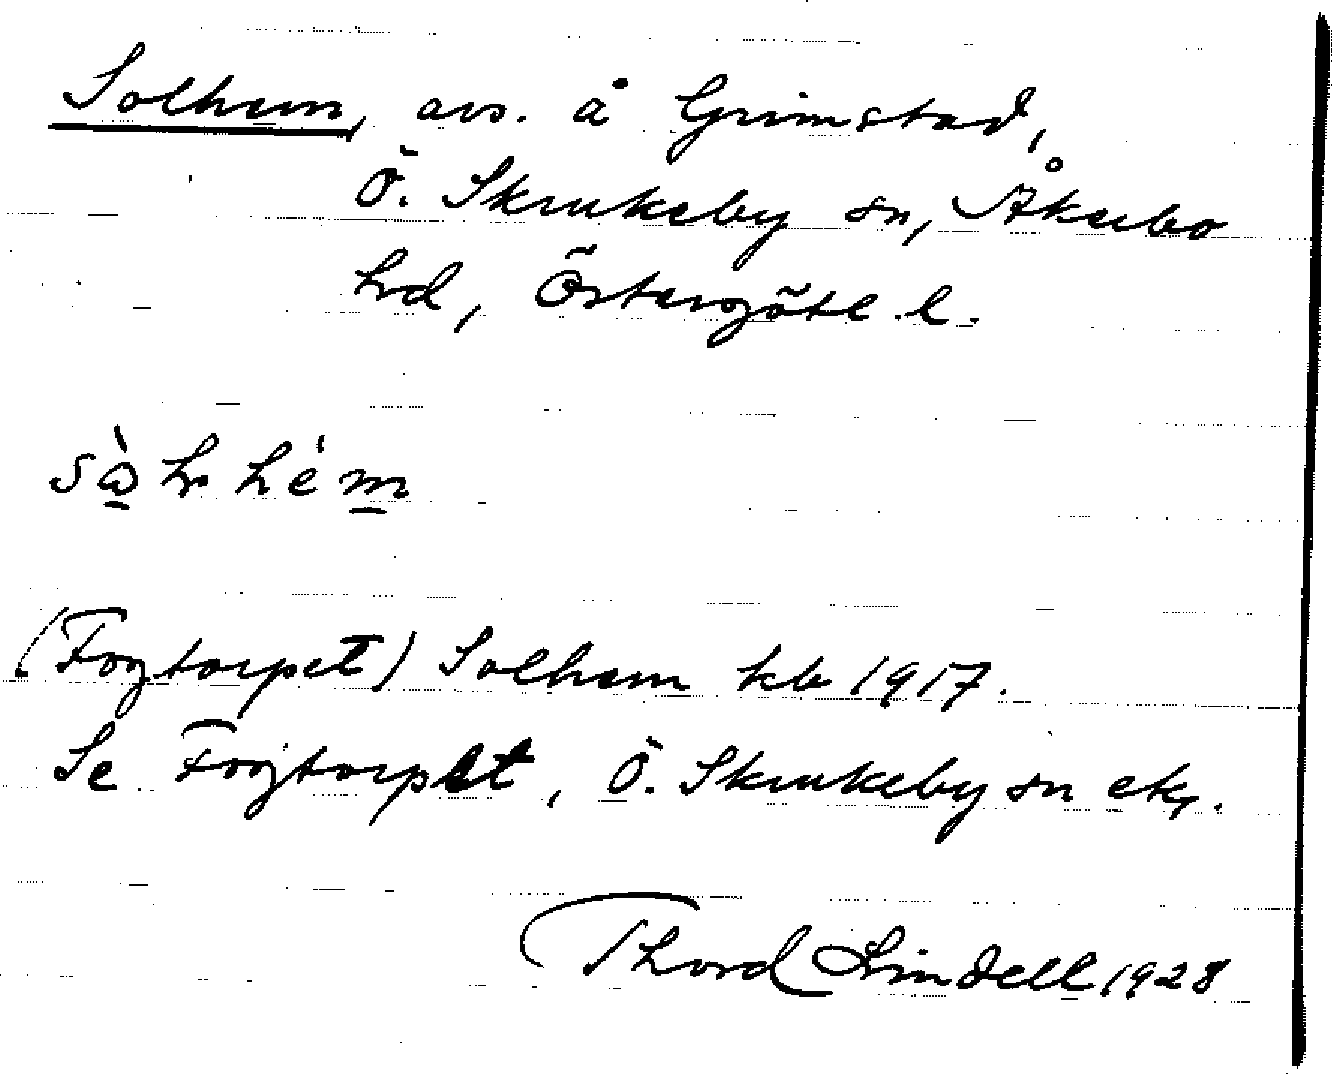 Solhem, avs. å Grimstad,
Ö. Skrukeby sn, Åkerbo
hd, Östergötl. l.
(Fogtorpet) Solhem kb 1917.
Se Fogtorpet, Ö. Skrukeby sn ek,.
Thord Lindell 1928